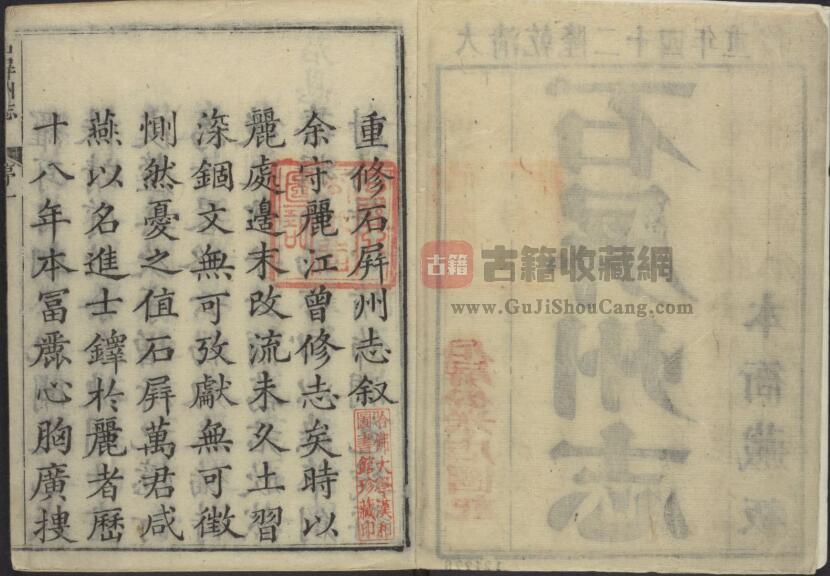 重修石屛州志叙
余守麗江曾修志矣時以
麗處邊末改流未久土習
深錮文無可攷獻無可徵
惻然憂之值石屛萬君咸
燕以名進士鐸於麗者歷
十八年本冨麃心胸廣捜
序一
哈佛大學漢和
圖書館珍藏印
大清乾隆二十四年重
石屛州志
本衙藏板
古籍
古籍收藏網
www.GuJiShouCang.com